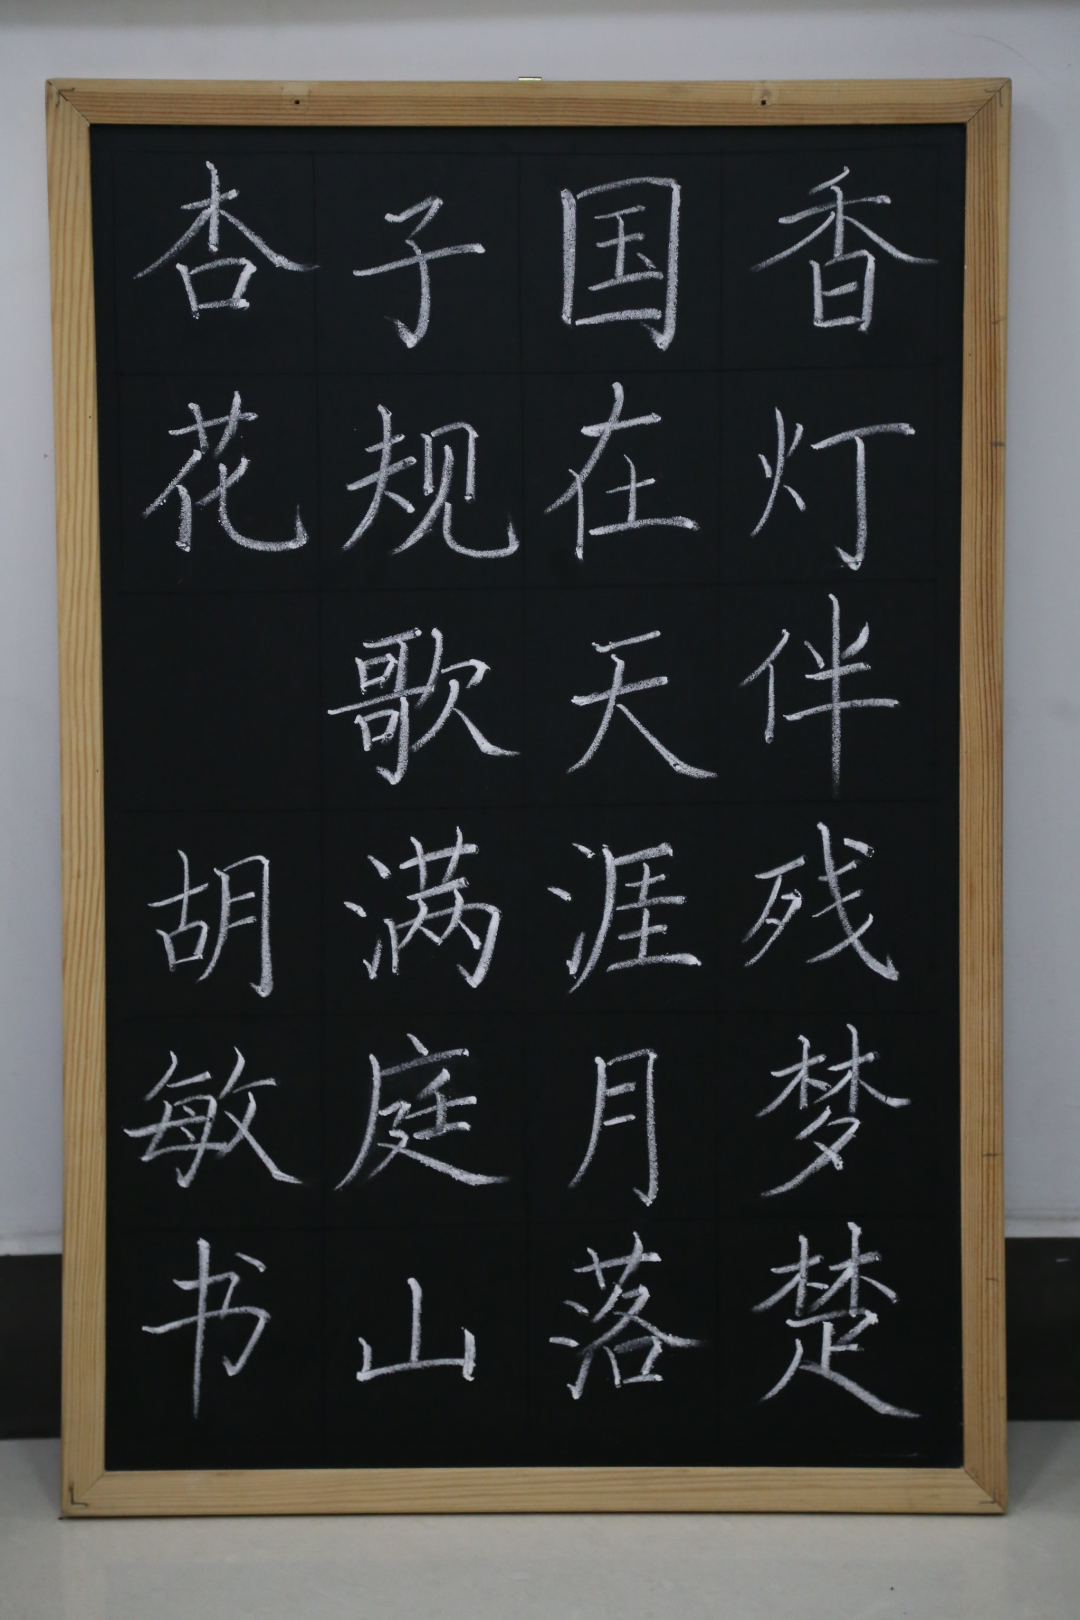 香灯伴残梦楚
国在天涯月落
子规歌满庭山
杏花
胡敏书